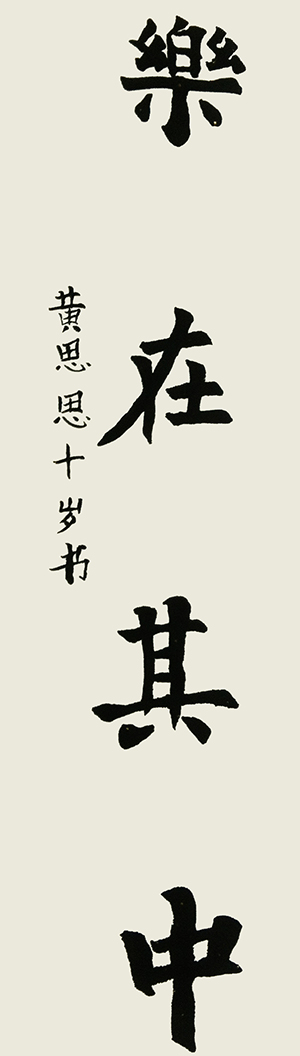 樂在其中
黄思思十岁书